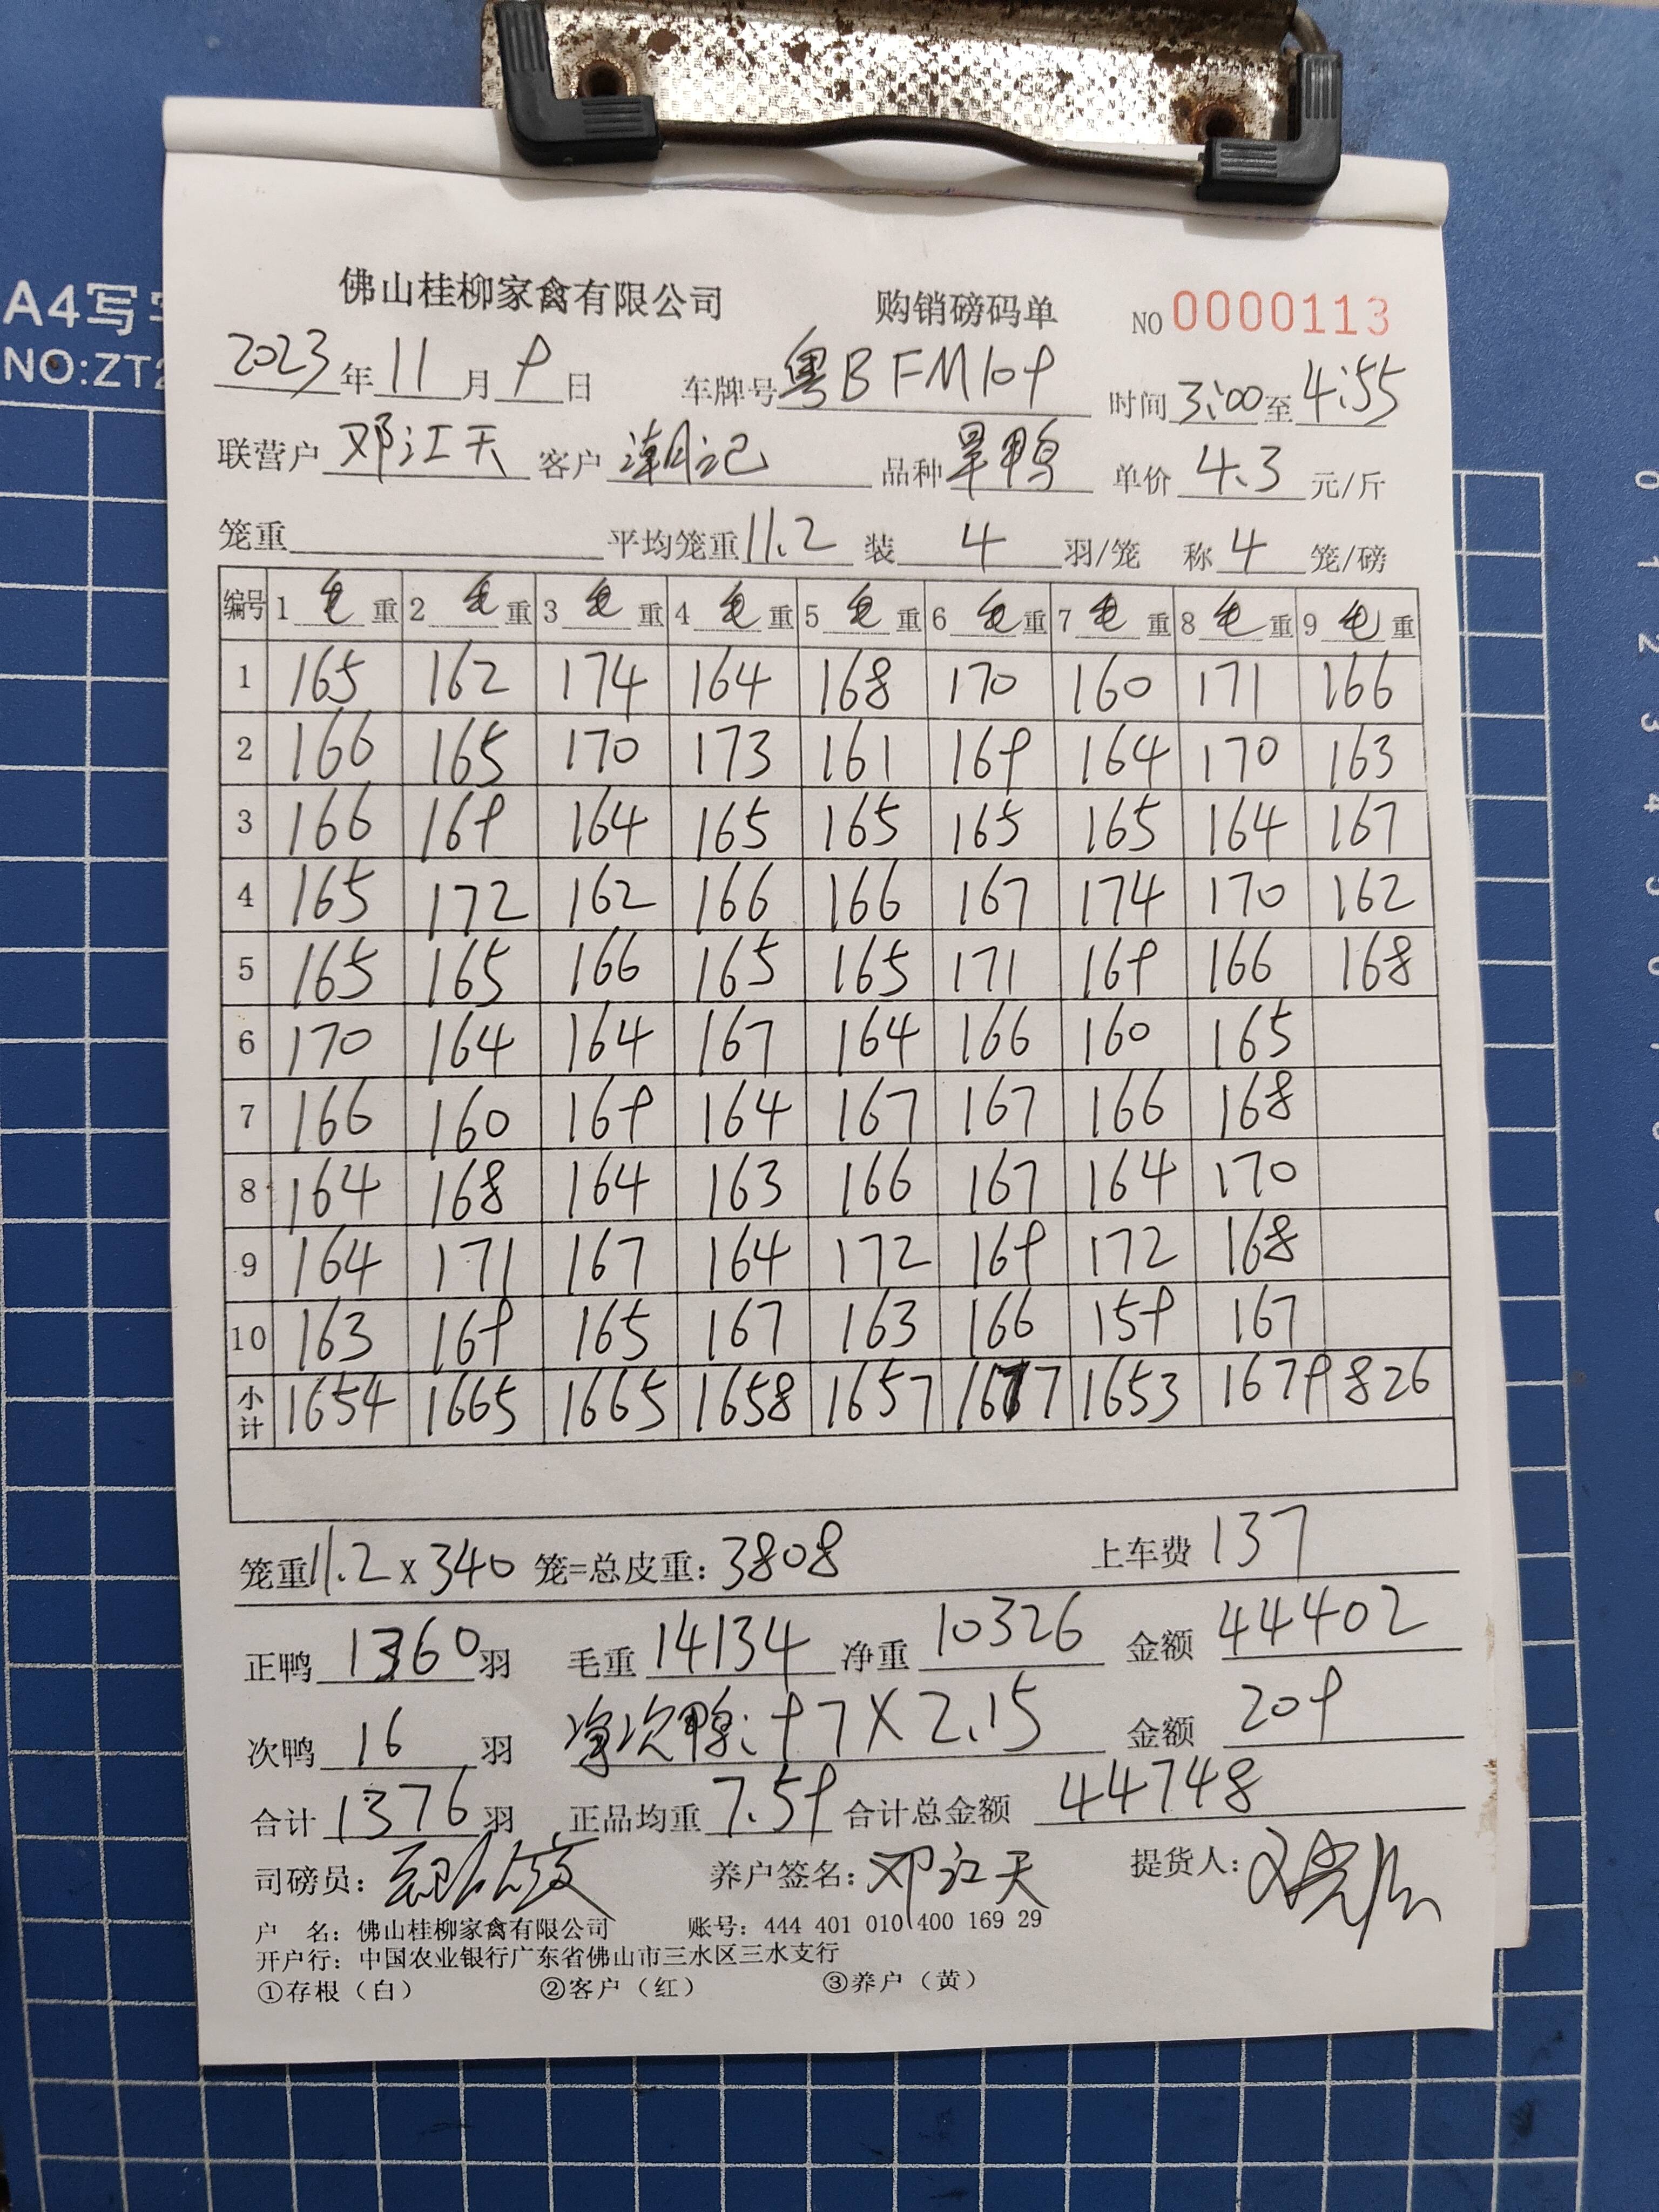 A4写字
NO:ZT2
佛山桂柳家禽有限公司 购销磅码单 NO 0000113
2023年11月9日 车牌号粤BFM109 时间3:00至4:55
联营户邓江天 客户潮记 品种旱鸭 单价4.3元/斤
笼重 平均笼重11.2 装4羽/笼 称4笼/磅
编号 1毛重 2毛重 3毛重 4毛重 5毛重 6毛重 7毛重 8毛重 9毛重
1 165 162 174 164 168 170 160 171 166
2 166 165 170 173 161 169 164 170 163
3 166 169 164 165 165 165 165 164 167
4 165 172 162 166 166 167 174 170 162
5 165 165 166 165 165 171 169 166 168
6 170 164 164 167 164 166 160 165
7 166 160 169 164 167 167 166 168
8 164 168 164 163 166 167 164 170
9 164 171 167 164 172 169 172 168
10 163 169 165 167 163 166 159 167
小计 1654 1665 1665 1658 1657 1677 1653 1679 826
笼重11.2x340笼=总皮重:3808 上车费137
正鸭1360羽 毛重14134 净重10326 金额44402
次鸭16羽 净次鸭:97X2.15 金额209
合计1376羽 正品均重7.59 合计总金额44748
司磅员: 养户签名:邓江天 提货人:
户 名:佛山桂柳家禽有限公司 账号:444 401 010 400 169 29
开户行:中国农业银行广东省佛山市三水区三水支行
①存根(白) ②客户(红) ③养户(黄)
0
1
2
3
4
5
6